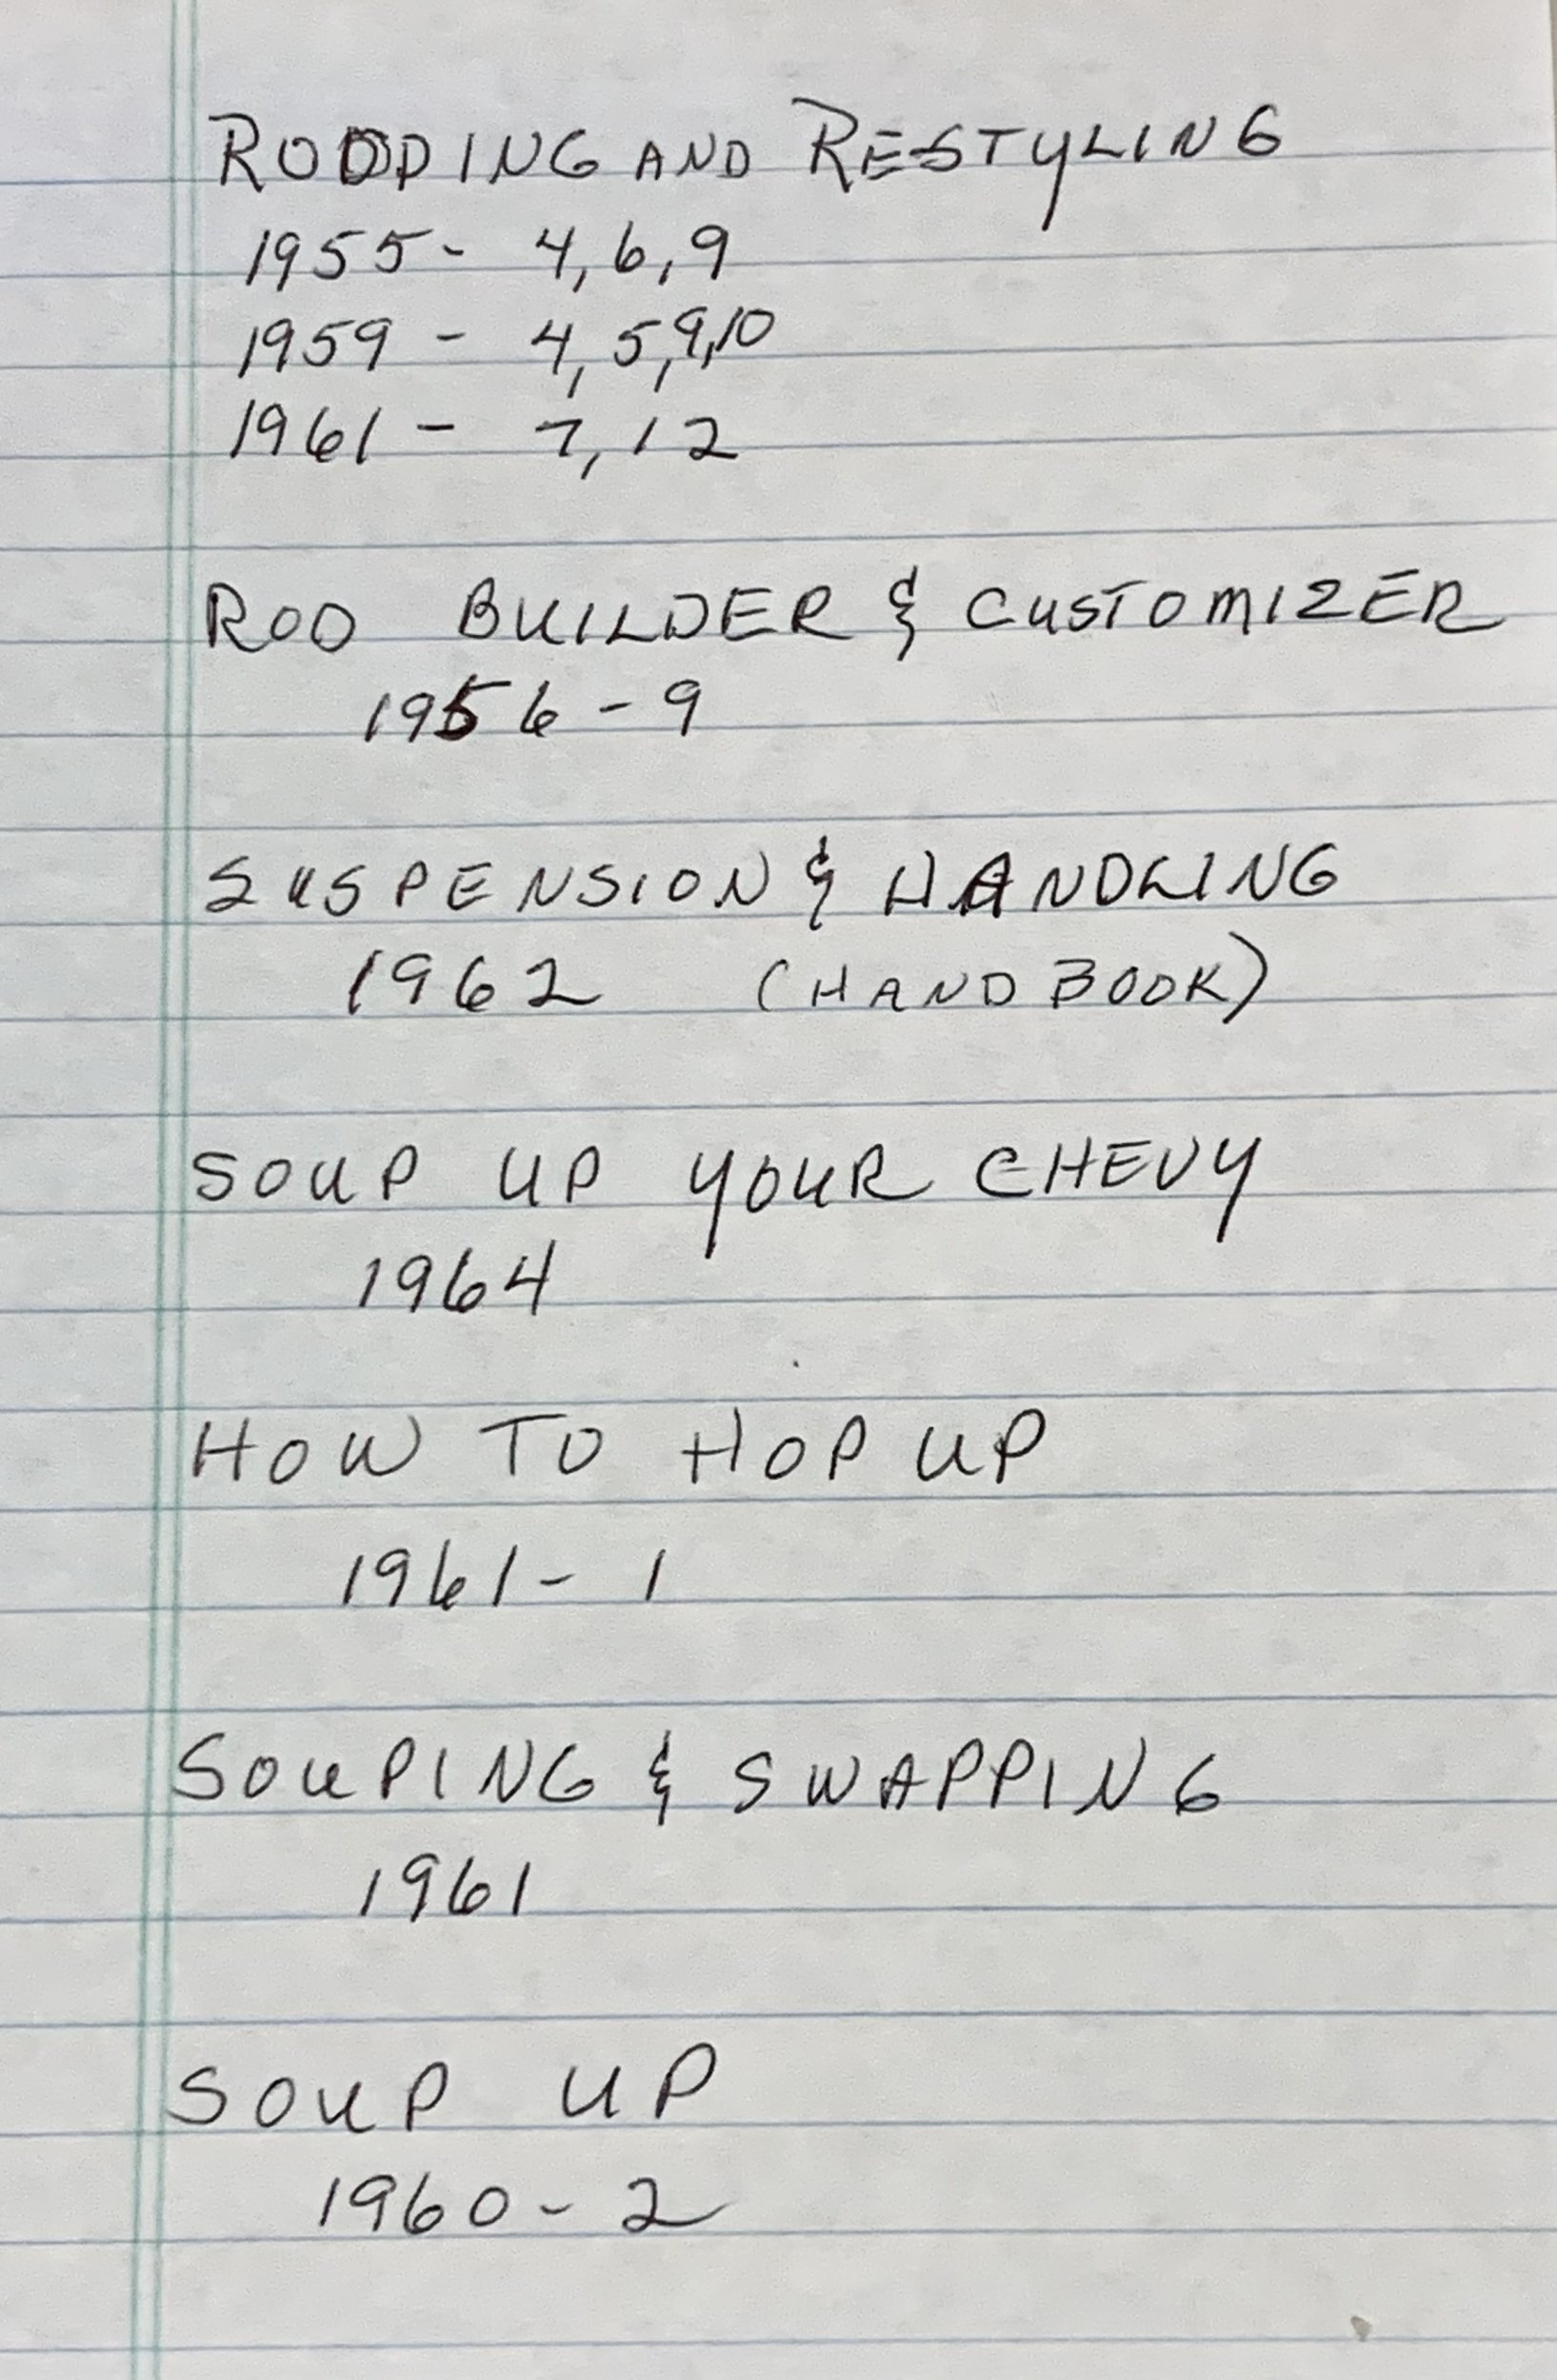 RODDING AND RESTYLING
1955- 4,6,9
1959 - 4,5,9,10
1961 - 7,12
ROD BUILDER & CUSTOMIZER
1956 - 9
SUSPENSION & HANDLING
1962 (HANDBOOK)
SOUP UP YOUR CHEVY
1964
HOW TO HOP UP
1961 - 1
SOUPING & SWAPPING
1961
SOUP UP
1960 - 2